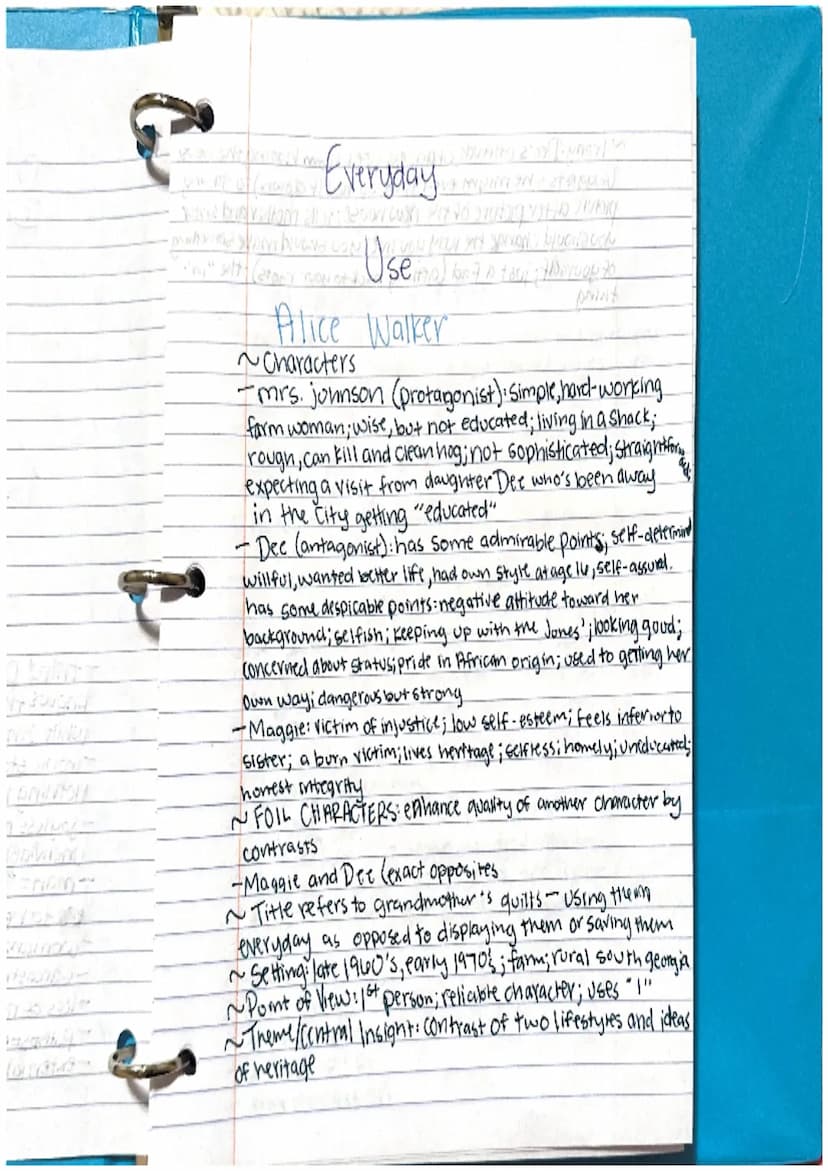 Everyday
Use
Alice Walker
~Characters
-mrs. johnson (protagonist): simple, hard-working
farm woman; wise, but not educated; living in a shack;
rough, can kill and clean hog; not sophisticated; straightforward
expecting a visit from daughter Dee who's been away
in the city getting "educated"
- Dee (antagonist): has some admirable points, self-determined
willful, wanted better life, had own style at age 16, self-assured.
has some despicable points: negative attitude toward her
background; selfish; keeping up with the Jones'; looking good;
concerned about status; pride in African origin; used to getting her
own way; dangerous but strong
-Maggie: victim of injustice; low self-esteem; feels inferior to
sister; a burn victim; lives heritage; selfless; homely; uneducated;
honest integrity
~ FOIL CHARACTERS: enhance quality of another character by
contrasts
-Maggie and Dee (exact opposites
~ Title refers to grandmother's quilts - using them
everyday as opposed to displaying them or saving them
~ Setting: late 1960's, early 1970's; farm; rural south georgia
~Point of View: 1st person; reliable character; uses "I"
~Theme/Central Insight: contrast of two lifestyles and ideas
of heritage